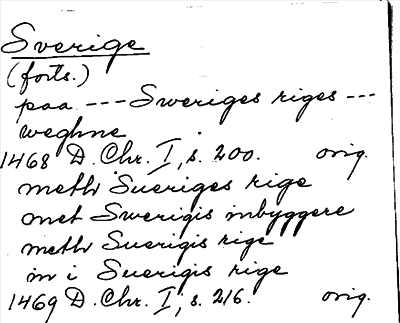 Sverige
(forts.)
paa --- Sweriges riges ---
weghne
1468 D. Chr. I, s. 200. orig.
meth Sueriges rige
met Swerigis inbyggere
meth Suerigis rige
in i Suerigis rige
1469 D. Chr. I, s. 216. orig.